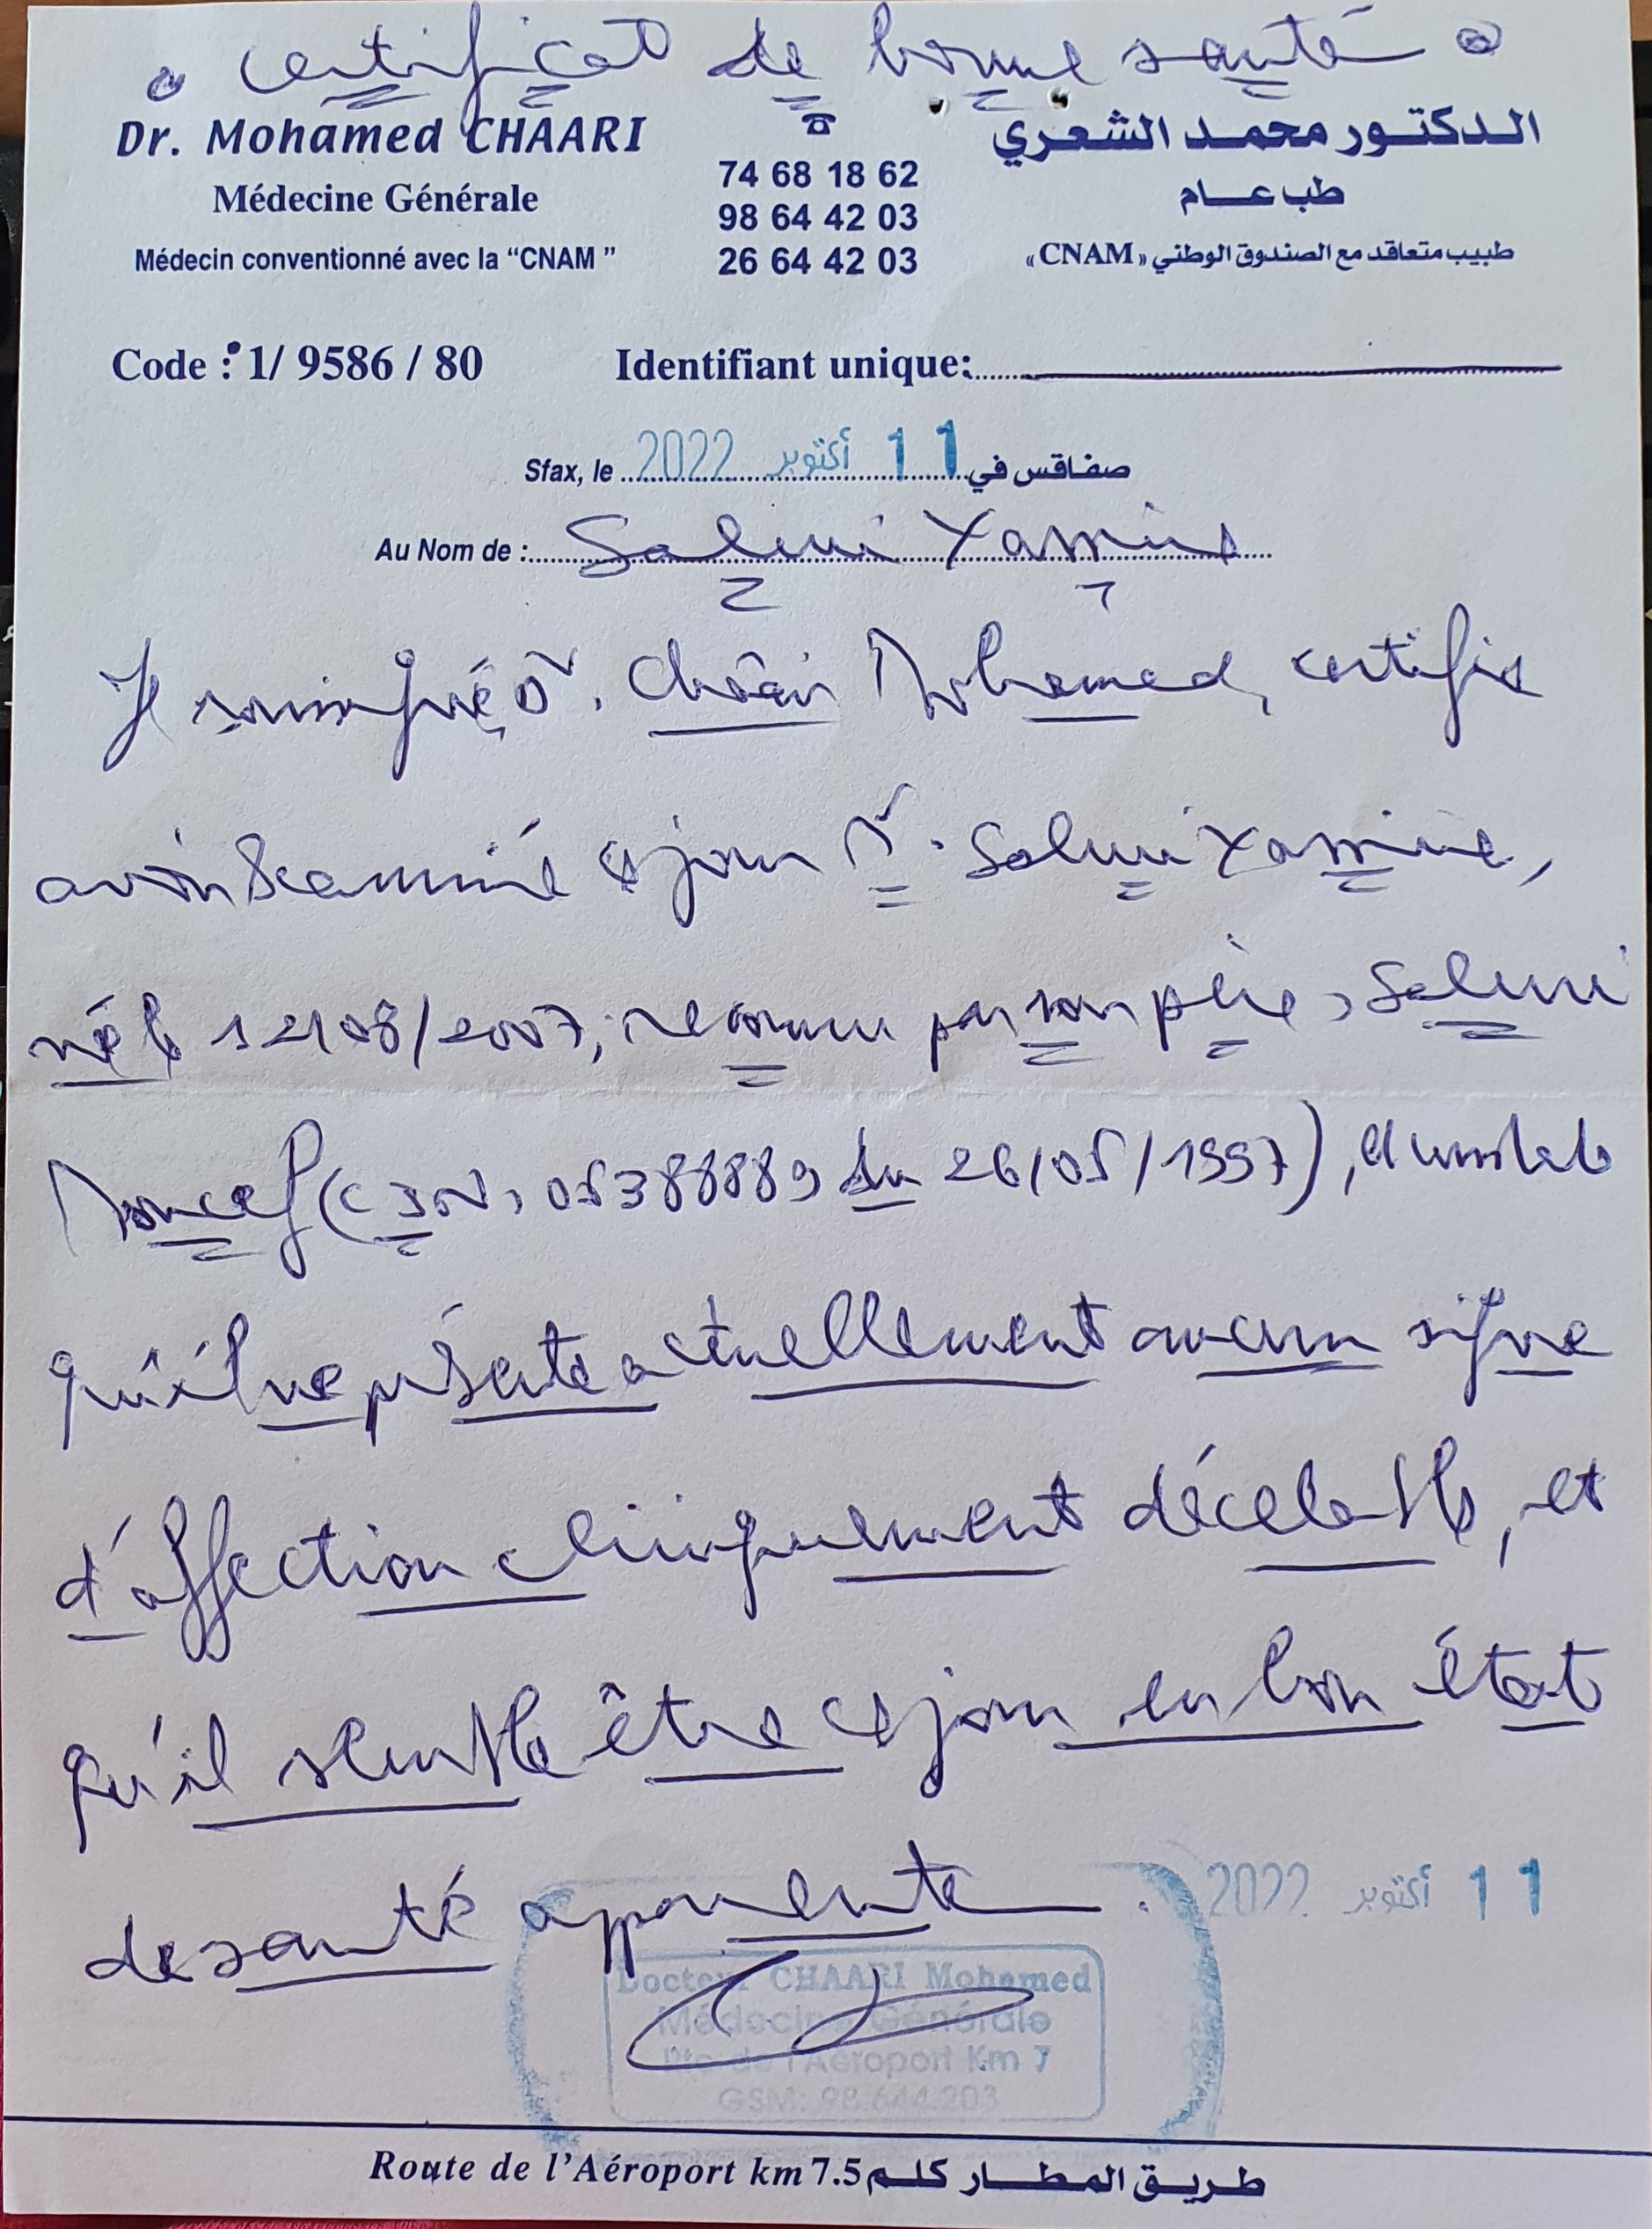 Certificat de bonne santé
Dr. Mohamed CHAARI
Médecine Générale
Médecin conventionné avec la “CNAM ”
74 68 18 62
98 64 42 03
26 64 42 03
الدكتور محمد الشعري
طب عام
طبيب متعاقد مع الصندوق الوطني «CNAM»
Code : 1/ 9586 / 80 Identifiant unique:
Sfax, le 11 أكتوبر 2022 صفاقس في
Au Nom de : Salmi Yassine
Je soussigné, Dr. Chaâri Mohamed, certifie
avoir examiné ce jour Mr. Salmi Yassine,
né le 12/08/2007, reconnu par son père, Salmi
Moncef (CIN, 05388889 du 26/05/1997), et constaté
qu'il ne présente actuellement aucun signe
d'affection cliniquement décelable, et
qu'il semble être ce jour en bon état
de santé apparente.
11 أكتوبر 2022
Docteur CHAARI Mohamed
Médecine Générale
Rte de l'Aéroport Km 7
GSM: 98.644.203
Route de l’Aéroport km 7.5 طريق المطار كلم